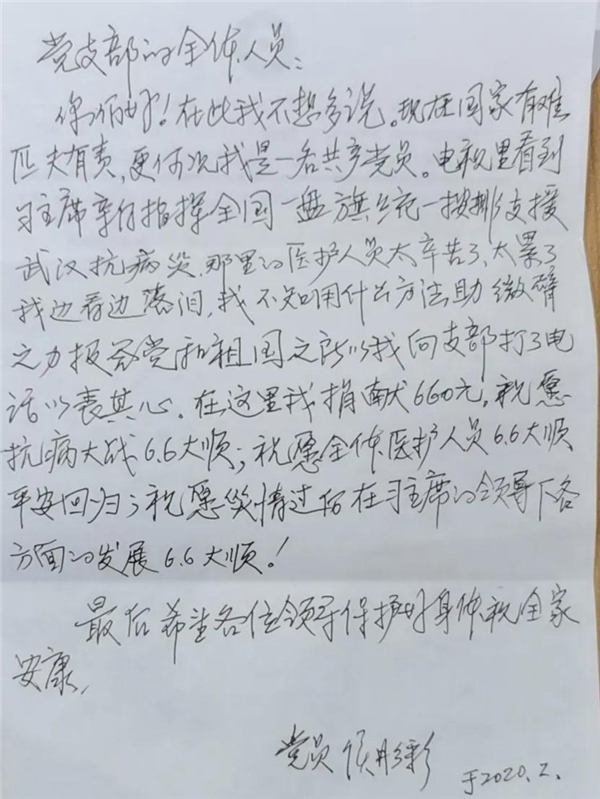 党支部的全体人员：
你们好！在此我不想多说。现在国家有难
匹夫有责，更何况我是一名共产党员。电视里看到
习主席亲自指挥全国一盘旗统一按排支援
武汉抗病災，那里的医护人员太辛苦了，太累了
我边看边落泪，我不知用什么方法助微臂
之力报答党和祖国之所以我向支部打了电
话以表其心。在这里我捐献660元，祝愿
抗病大战6.6大顺；祝愿全体医护人员6.6大顺
平安回归；祝愿災情过后在习主席的领导下各
方面的发展6.6大顺！
最后希望各位领导保护好身体祝全家
安康，
党员 侯彩
于2020.2.